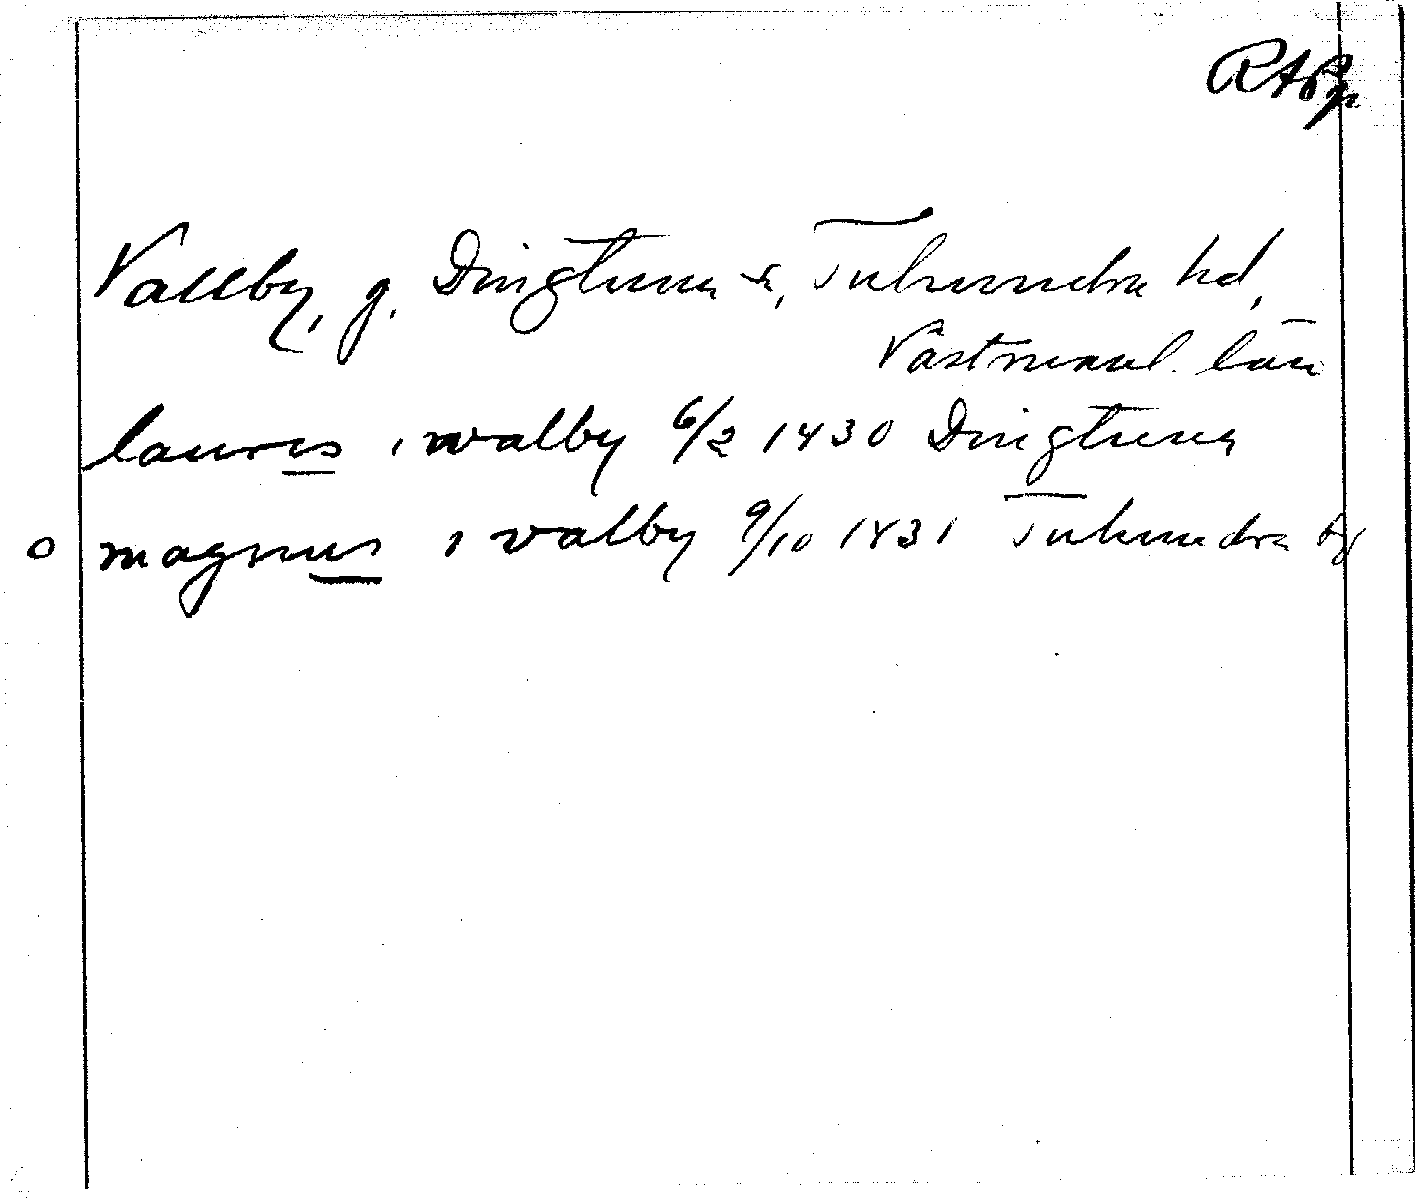 RAPp
Vallby, g. Dingtuna s, Tuhundra hd,
Västmanl. län
laurens i walby 6/2 1430 Dingtuna
o magnus i valby 9/10 1431 Tuhundra hd